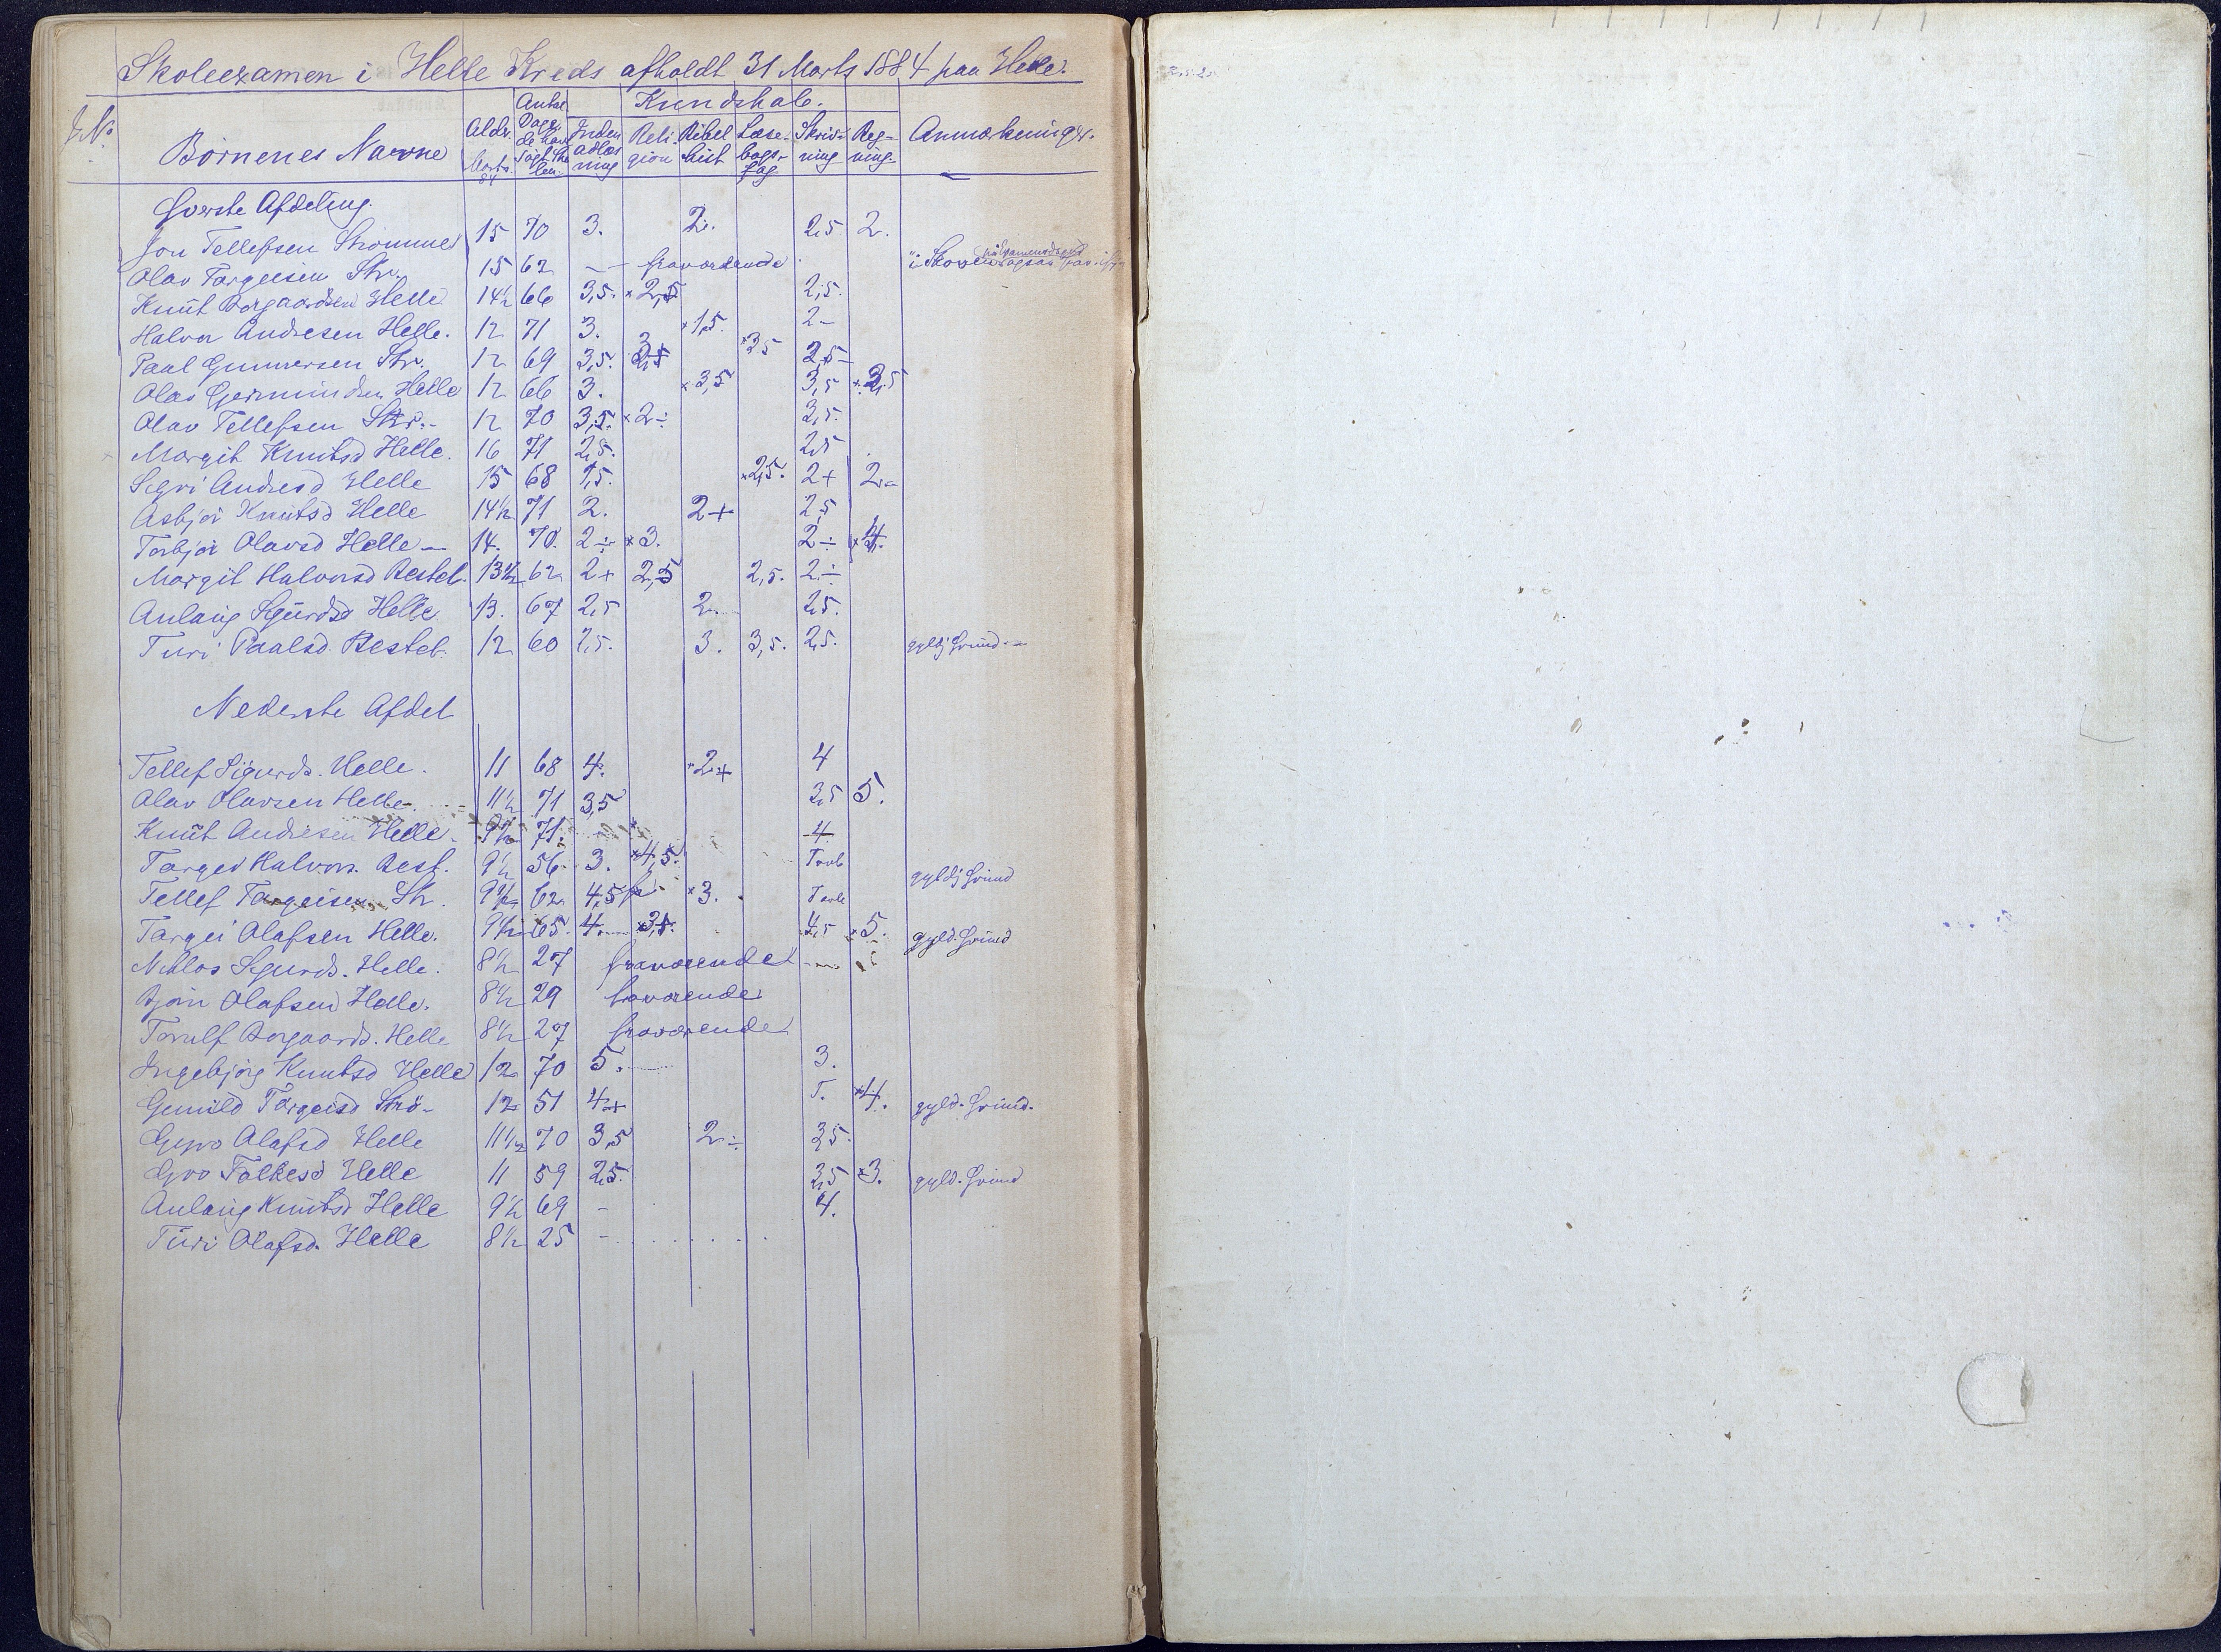 Skoleexamen i Helle Kreds afholdt 31 Marts 1884 paa Helle.
No Børnenes Navne Alder Marts 84 Antal Dage de have søgt Skolen. Kundskab. Indenadlæsning Religion Bibelhist Læsebogsfag Skrivning Regning Anmærkninger.
Øverste Afdeling.
Jon Tellefsen Strømme 15 70 3. 2. 2,5 2.
Olav Targeisen Str. 15 62 – – fraværende "i Skoven
Knut Borgaardsen Helle 14½ 66 3,5. × 2,5 2,5.
Halvor Andresen Helle. 12 71 3. × 1,5. 2 –
Paal Gunnarsen Str. 12 69 3,5. × 3,5 2,5 –
Olav Gjermundsen Helle 12 66 3. × 3,5 3,5
Olav Tellefsen Str. – 12 70 3,5. × 2 ÷ 3,5.
Margit Knutsd Helle. 16 71 2,5. 2,5
Sigri Andresd Helle 15 68 1,5. × 2,5. 2 + 2. –
Asbjør Knutsd Helle 14½ 71 2. 2 + 2,5
Torbjør Olavsd Helle – 14. 70. 2 ÷ × 3. 2 ÷
Margit Halvorsd Besteb. 13½ 62 2 + 2,5 2,5. 2 ÷
Anlaug Sigurdsd Helle 13. 67 2,5 2. 2,5.
Turi Paalsd. Besteb. 12 60 2,5. 3. 3,5. 2,5. gyldj Grund. –
Nederste Afdel
Tellef Sigurds. Helle. 11 68 4. × 2 + 4
Olav Olavsen Helle. 11½ 71 3,5 3,5 5.
Knut Andresen Helle. 9½ 71. 4
Targei Halvors. Best. 9½ 56 3. × 4,5. Tavle
Tellef Targeisen Str. 9½ 62 4,5 × 3. Tavle gyldj Grund
Targei Olafsen Helle. 9½ 65. 4. 4,5 × 5. gyld. Grund
Niklos Sigurds. Helle. 8½ 27 fraværende
Bjørn Olafsen Helle. 8½ 29 fraværende
Torulf Borgaards. Helle 8½ 27 fraværende
Ingebjørg Knutsd Helle 12 70 5. 3.
Gunild Targeisd Strø – 12 51 4 + T. × 4. gyld. Grund.
Gyro Olafsd Helle 11½ 70 3,5 2. ÷ 3,5.
Gro Folkesd Helle 11 59 2,5. 3,5 × 3. gyld. Grund
Anlaug Knutsd Helle 9½ 69 – 4.
Turi Olafsd. Helle 8½ 25 –